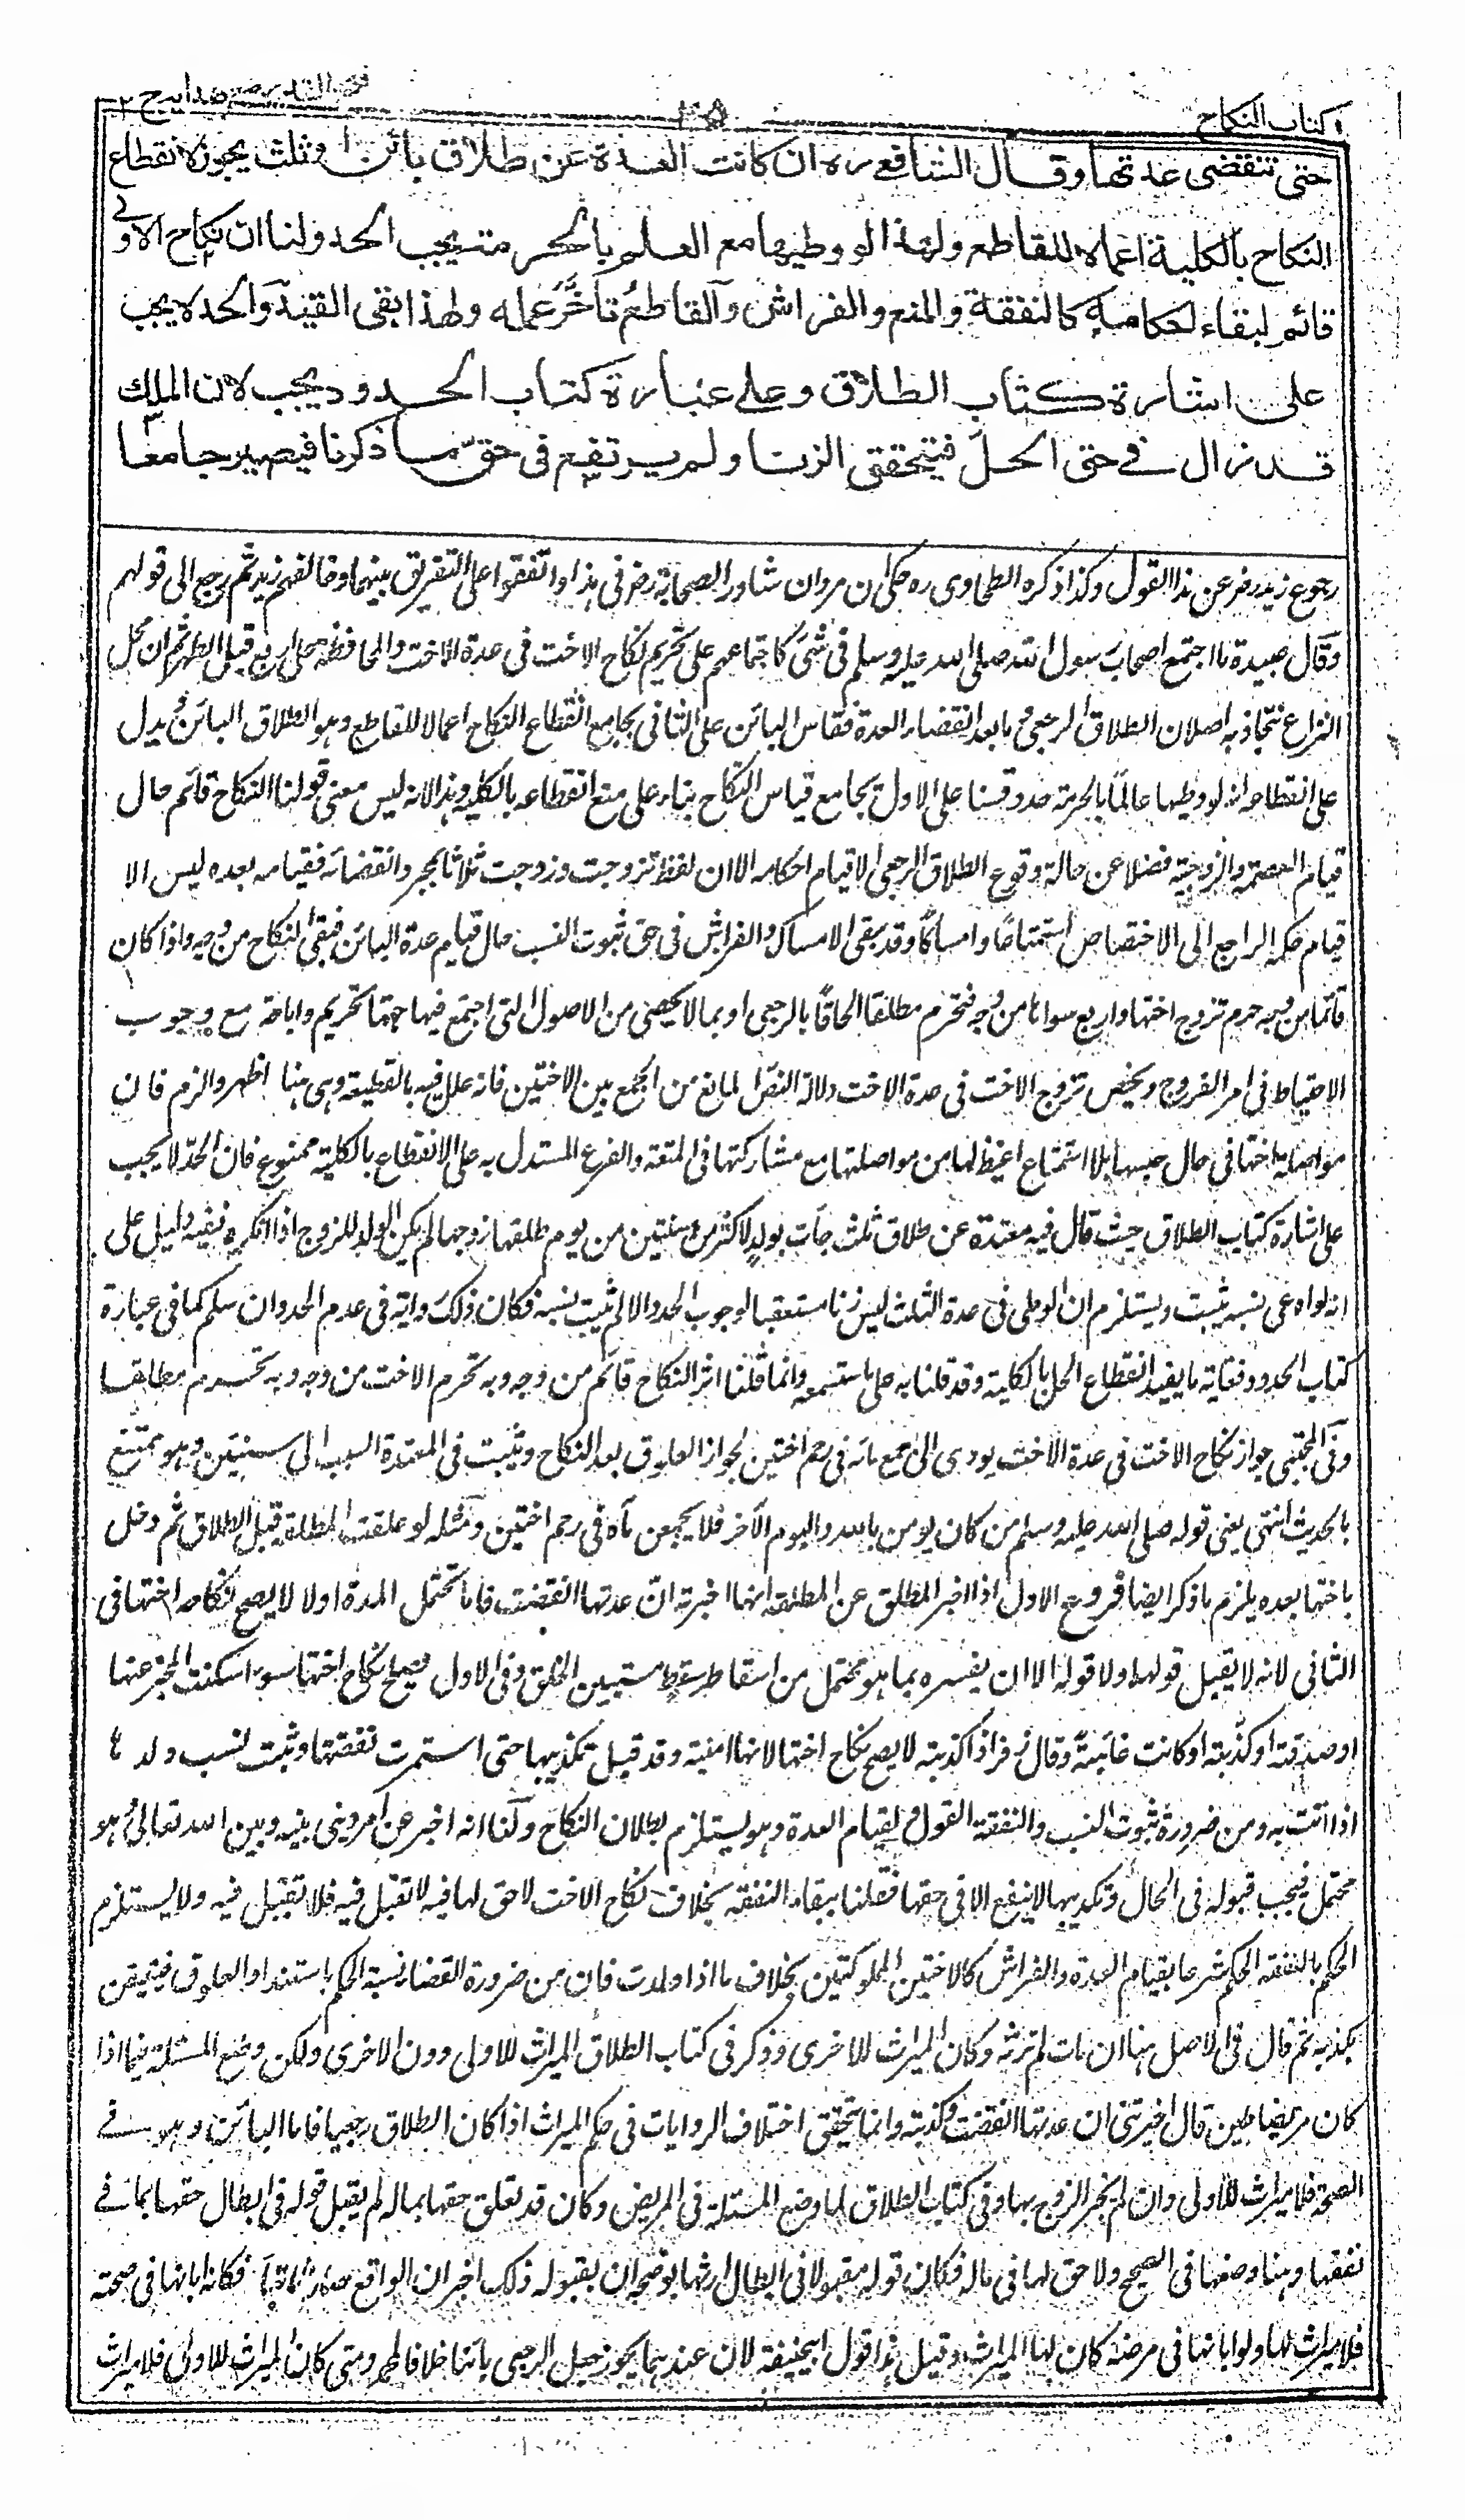 كتاب النكاح
فتح القدير مع هدايه ج ٢
حتى تنقضى عدتها وقال الشافعى ره ان كانت العدة عن طلاق بائن او ثلث يجوز لانقطاع
النكاح بالكلية اعمالا للقاطع ولهذا لو وطيها مع العلم بالحرمة يجب الحد ولنا ان نكاح الاولى
قائم لبقاء احكامه كالنفقة والمنع والفراش والقاطع تأخر عمله ولهذا بقى القيد والحد لا يجب
على اشارة كتاب الطلاق وعلى عبارة كتاب الحدود يجب لان الملك
قد زال فى حق الحل فيتحقق الزنا ولم يرتفع فى حق ما ذكرنا فيصير جامعا
رجوع زيد رض عن هذا القول وكذا ذكره الطحاوى ره حكى ان مروان شاور الصحابة رض فى هذا واتفقوا على التفريق بينهما وخالفهم زيد ثم رجع الى قولهم
وقال عبيدة ما اجتمع اصحاب رسول الله صلى الله عليه وسلم فى شئ كاجتماعهم على تحريم نكاح الاخت فى عدة الاخت والمحافظة على اربع قبل الظهر ثم ان محل
النزاع يتجاذبه اصلان الطلاق الرجعى وما بعد انقضاء العدة فقاس البائن على الثانى بجامع انقطاع النكاح اعمالا للقاطع وهو الطلاق البائن ويدل
على انقطاعه انه لو وطيها عالما بالحرمة حد وقسنا على الاول بجامع قياس النكاح بناء على منع انقطاعه بالكلية وهذا لانه ليس معنى قولنا النكاح قائم حال
قيام العصمة والزوجية فضلا عن حالة وقوع الطلاق الرجعى الا قيام احكامه الا ان لفظ تزوجت وزوجت ثلاثا بمجر وانقضائه فقيامه بعده ليس الا
قيام حكمه الراجع الى الاختصاص استمتاعا وامساكا وقد بقى الامساك والفراش فى حق ثبوت النسب حال قيام عدة البائن فبقى النكاح من وجه واذا كان
قائما من وجه حرم تزوج اختها واربع سواها من وجه فتحرم مطلقا الحاقا بالرجعى او بما لا يحصى من الاصول التى اجتمع فيها جهتا تحريم واباحة مع وجوب
الاحتياط فى امر الفروج ويخص تزوج الاخت فى عدة الاخت دلالة النص المانع من الجمع بين الاختين فانه علل فيه بالقطيعة وهى هنا اظهر والزم فان
مواصلة اختها فى حال حبسها بلا استمتاع اغيظ لها من مواصلتها مع مشاركتها فى المتعة والفرع المستدل به على الانقطاع بالكلية ممنوع فان الحد لا يجب
على اشارة كتاب الطلاق حيث قال فيه معتدة عن طلاق ثلث جاءت بولد لاكثر من سنتين من يوم طلقها زوجها لم يكن الولد للزوج اذا انكره ففيه دليل على
انه لو ادعى نسبه ثبت ويستلزم ان الوطى فى عدة الثلث ليس زنا مستعقبا لوجوب الحد والا لم يثبت نسبه فكان ذلك رواية فى عدم الحد وان سلم كما فى عبارة
كتاب الحدود فغاية ما يفيد انقطاع الحل بالكلية وقد قلنا به على ما سنسمعه وانما قلنا اثر النكاح قائم من وجه وبه تحرم الاخت من وجه وبه تحرم مطلقا
وفى المجتبى جواز نكاح الاخت فى عدة الاخت يودى الى جمع مائه فى رحم اختين لجواز العلوق بعد النكاح ويثبت فى المعتدة النسب الى سنتين وهو ممتنع
بالحديث انتهى يعنى قوله صلى الله عليه وسلم من كان يومن بالله واليوم الآخر فلا يجمعن ماءه فى رحم اختين ومثله لو علقت المطلقة قبيل الطلاق ثم دخل
باختها بعده يلزم ما ذكر ايضا فروع الاول اذا اخبر المطلق عن المطلقة انها اخبرته ان عدتها انقضت فاما تحتمل المدة اولا لا يصح نكاحه اختها فى
الثانى لانه لا يقبل قولها ولا قوله الا ان يفسره بما هو محتمل من اسقاط سقط مستبين الخلق وفى الاول يصح نكاح اختها سواء سكنت المخبر عنها
او صدقته او كذبته او كانت غائبة وقال زفر اذا كذبته لا يصح نكاح اختها لانها امينة وقد قبل تكذيبها حتى استمرت نفقتها وثبت نسب ولدها
اذا اتت به ومن ضرورة ثبوت النسب والنفقة القول بقيام العدة وهو يستلزم بطلان النكاح ولنا انه اخبر عن امر دينى بينه وبين الله تعالى هو
محتمل فيجب قبوله فى الحال وتكذيبها لا ينفع الا فى حقها فقلنا ببقاء النفقة بخلاف نكاح الاخت لا حق لها فيه لا تقبل فيه فلا تقبل فيه ولا يستلزم
الحكم بالنفقة الحكم شرعا بقيام العدة والفراش كالاختين المملوكتين بخلاف ما اذا ولدت فان من ضرورة القضاء نسبة الحكم باستناد العلوق فيتيقن
بكذبه ثم قال فى الاصل هنا ان مات لم ترثه وكان الميراث للاخرى وذكر فى كتاب الطلاق الميراث للاولى دون الاخرى ولكن وضع المسئلة فيما اذا
كان مريضا حين قال اخبرتنى ان عدتها انقضت وكذبته وانما يتحقق اختلاف الروايات فى حكم الميراث اذا كان الطلاق رجعيا فاما البائن وهو فى
الصحة فلا ميراث للاولى وان لم يخبر الزوج بها وفى كتاب الطلاق لما وضع المسئلة فى المريض وكان قد تعلق حقها بماله لم يقبل قوله فى ابطال حقها بما فى
نفقتها وهنا وضعها فى الصحيح ولا حق لها فى ماله فكان قوله مقبولا فى ابطال ارثها يوضحه ان بقبوله ذلك اخبر ان الواقع صار بائنا فكانه ابانها فى صحته
فلا ميراث لها ولو ابانها فى مرضه كان لها الميراث وقيل هذا قول ابيحنيفة لان عندهما يجوز جعل الرجعى بائنا خلافا لمحمد ومتى كان الميراث للاولى فلا ميراث